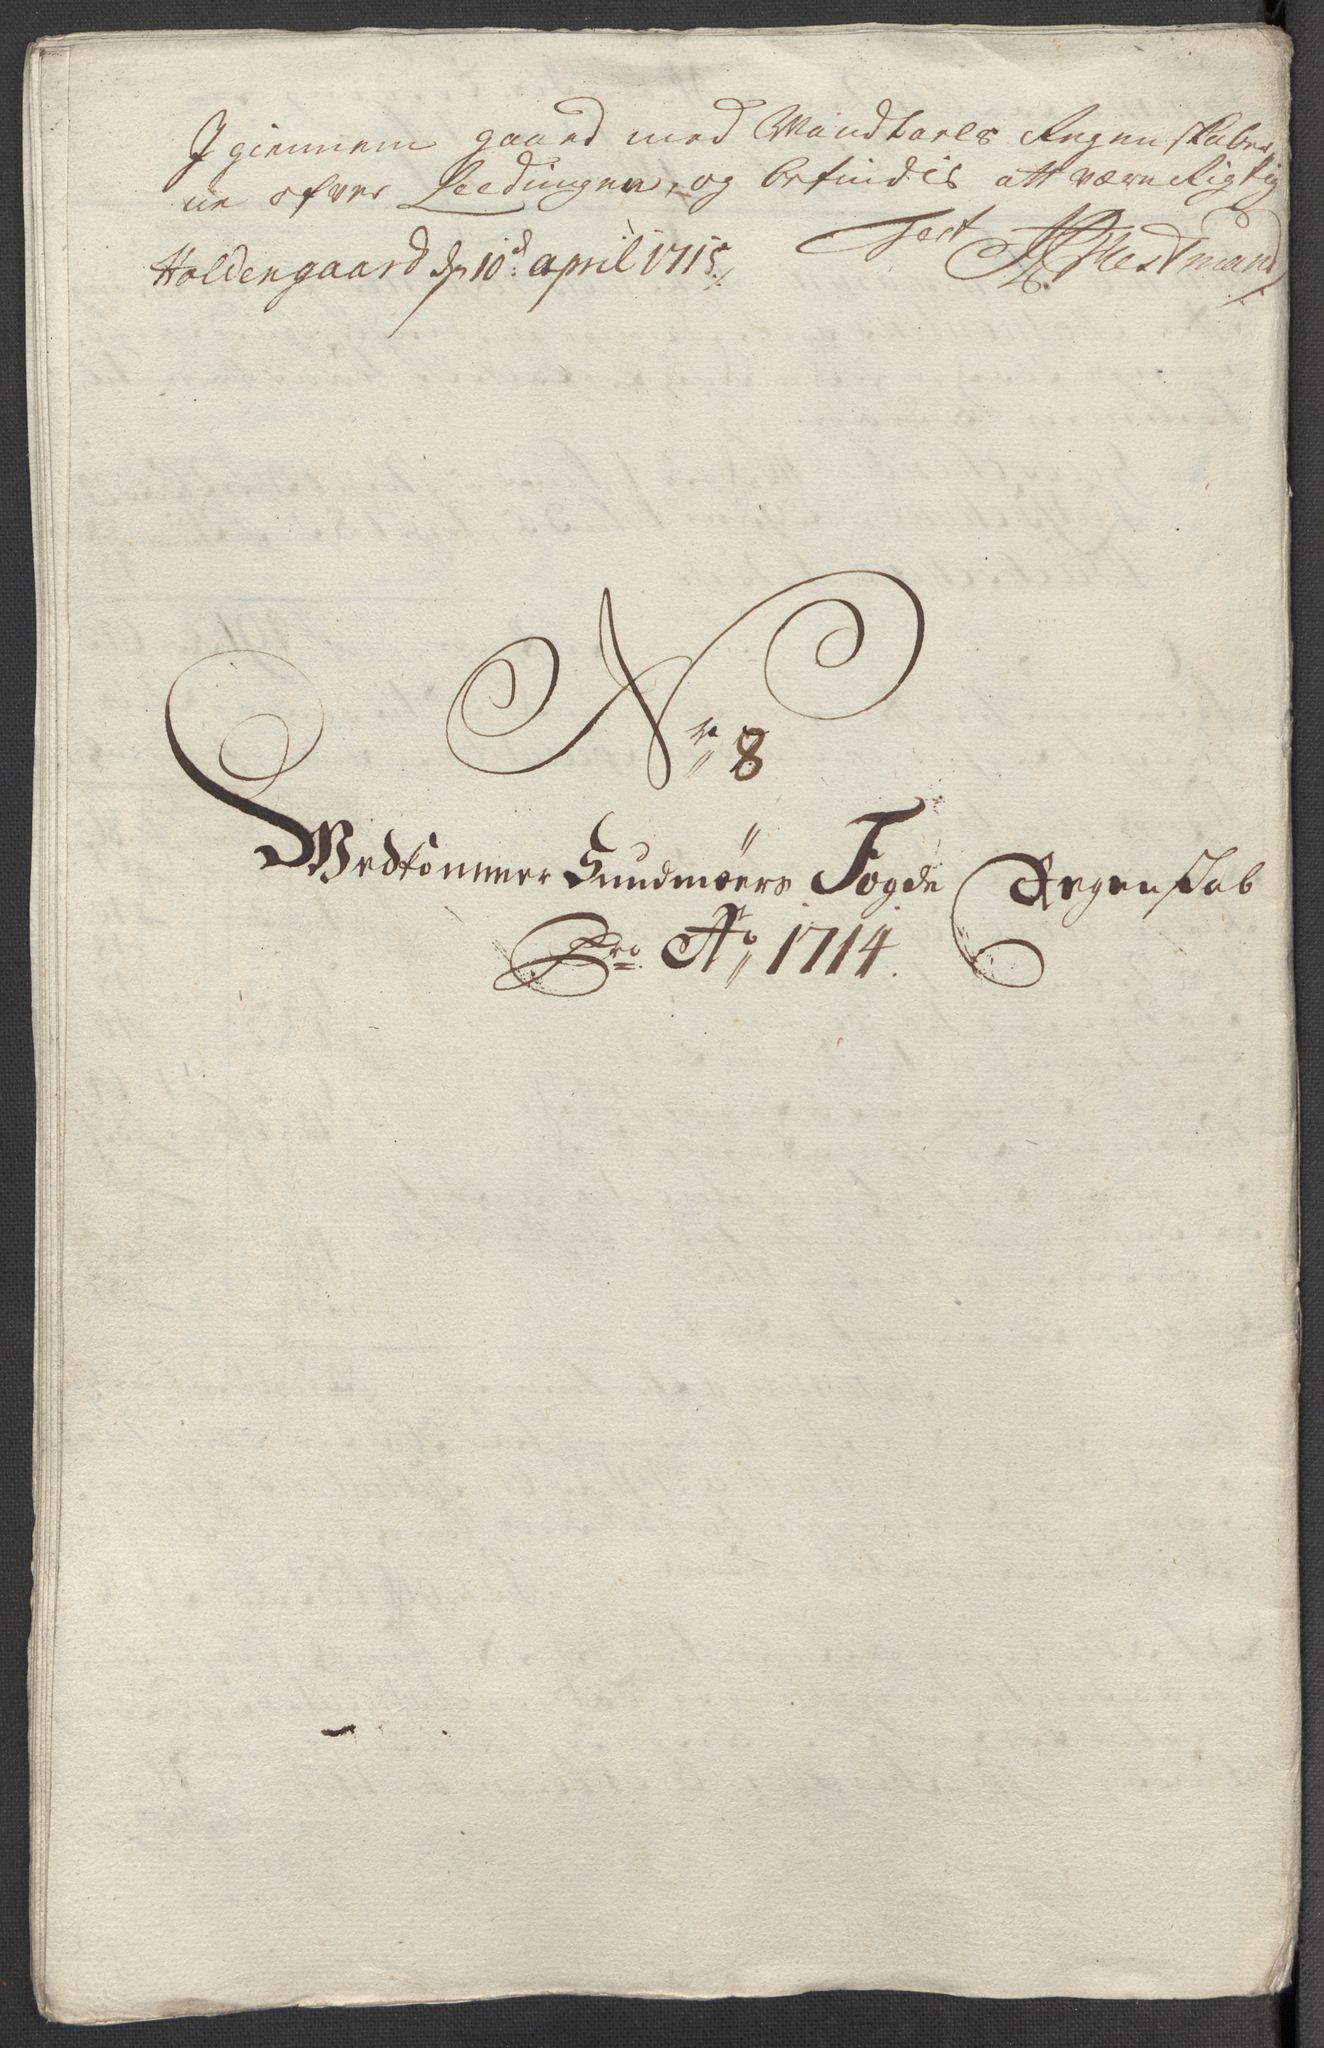 Igiennem gaaed med Mandtals Regenskaber,,
ne ofver Leedingen, og befindis att være Rigtig
Holdengaard dn 10d: april 1715/ Test
Nr 8
Vedkommer Sundmøers Fogde Regenskab
Pro Ao 1714.